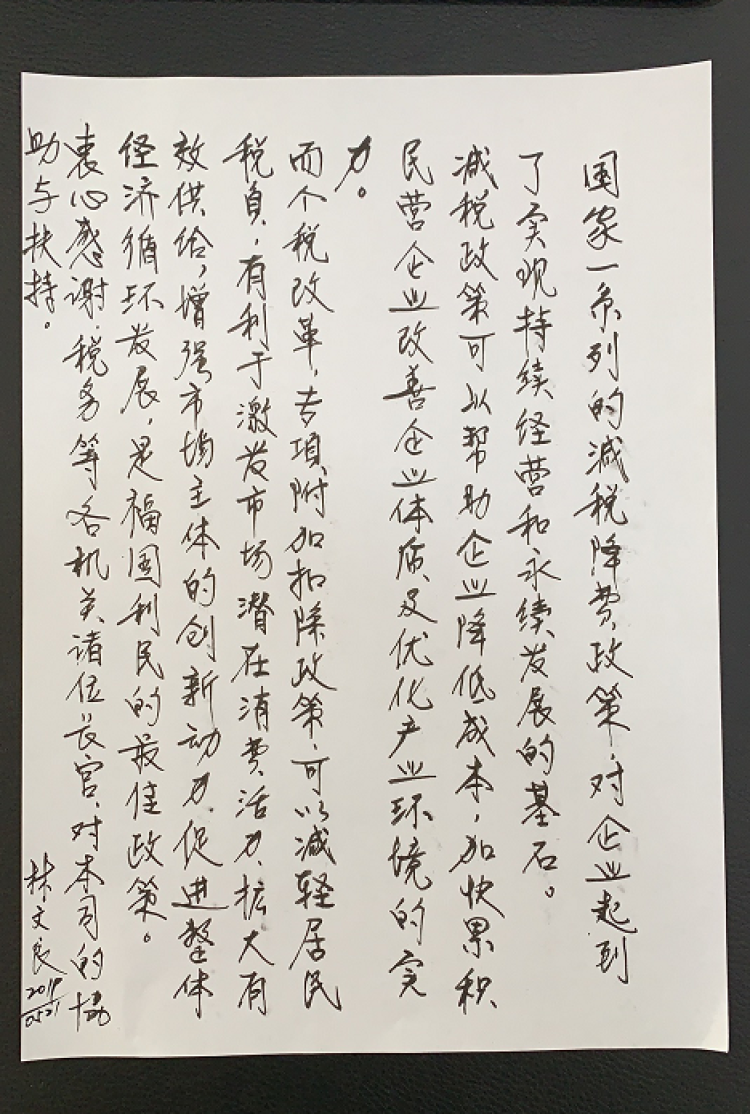 国家一系列的减税降费政策，对企业起到
了实现持续经营和永续发展的基石。
减税政策可以帮助企业降低成本，加快累积
民营企业改善企业体质及优化产业环境的实
力。
而个税改革，专项附加扣除政策，可以减轻居民
税负，有利于激发市场潜在消费活力、扩大有
效供给，增强市场主体的创新动力，促进整体
经济循环发展，是福国利民的最佳政策。
衷心感谢，税务等各机关诸位长官，对本司的協
助与扶持。
林文良
2019
0521